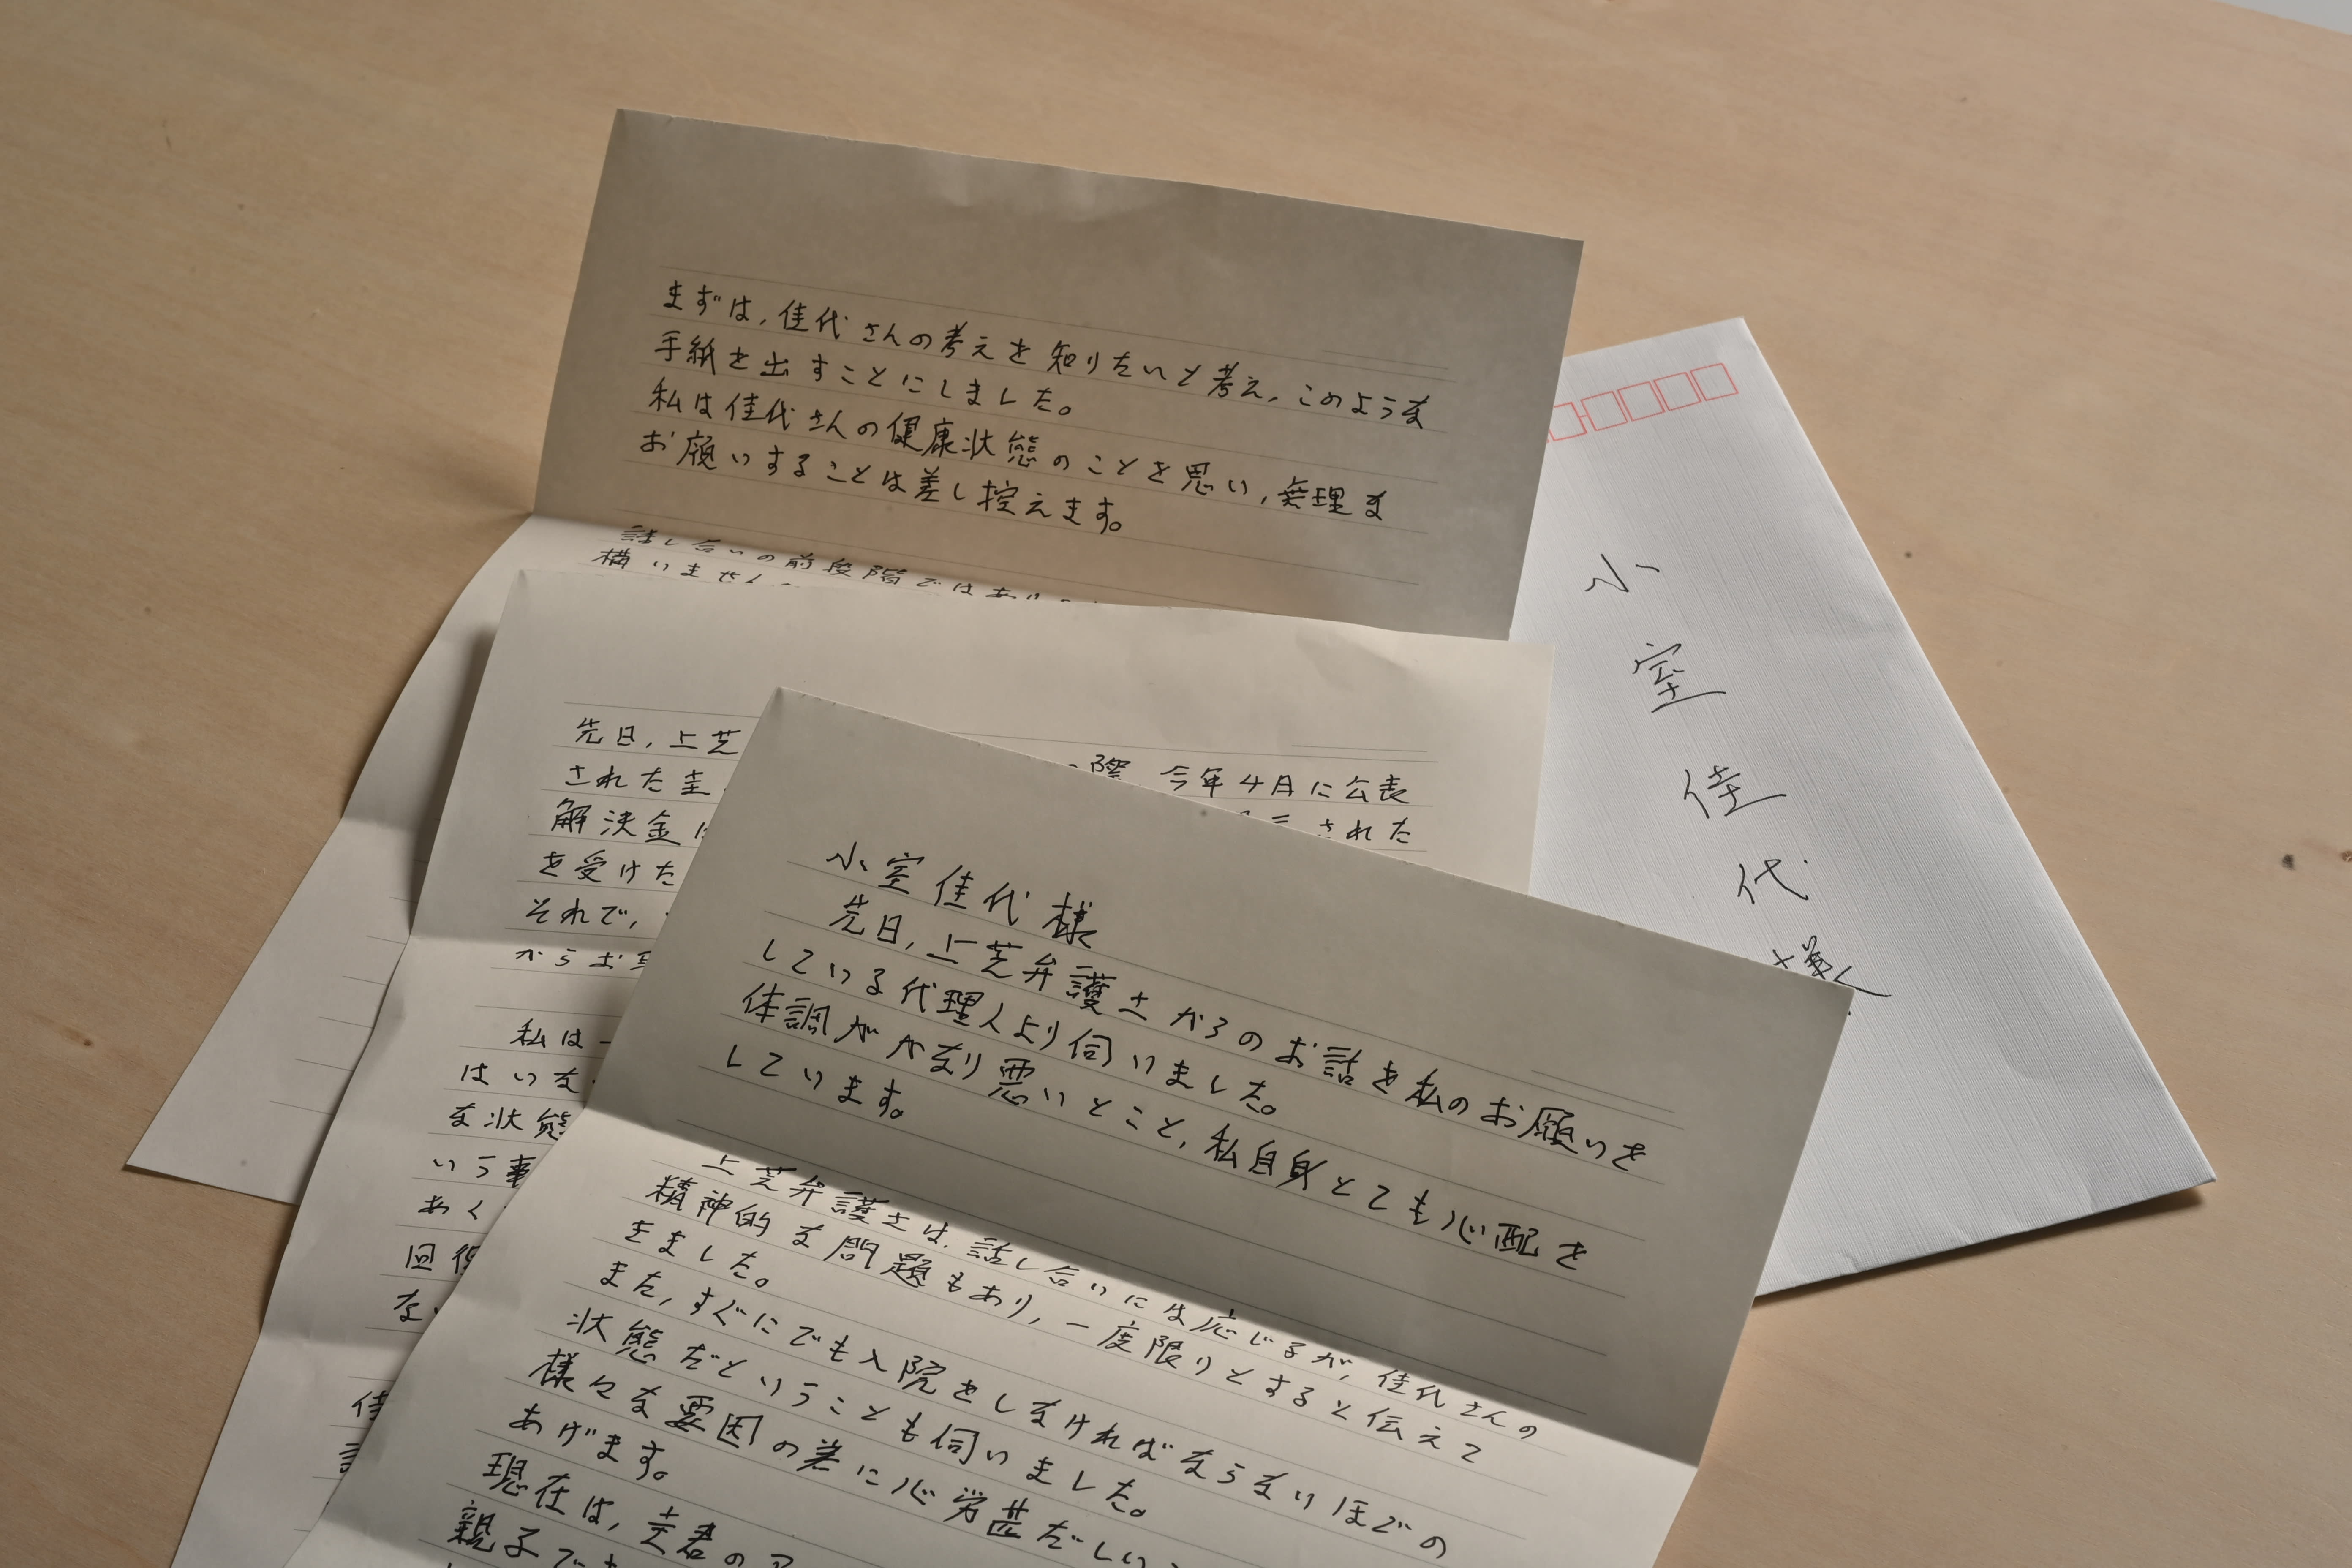 まずは,佳代さんの考えを知りたいと考え,このような
手紙を出すことにしました。
私は佳代さんの健康状態のことを思い,無理な
お願いすることは差し控えます。
話し合いの前段階ではあり
構いません
先日,上芝
際 今年4月に公表
された圭
された
解決金に
を受けた
それで,
からお
私は一
はいな
な状態
いう事
あく
回復
な
佳
小室佳代様
先日,上芝弁護士からのお話を私のお願いを
している代理人より伺いました。
体調がかなり悪いとこと,私自身とても心配を
しています。
上芝弁護士は,話し合いには応じるが,佳代さんの
精神的な問題もあり,一度限りとすると伝えて
きました。
また,すぐにでも入院をしなければならないほどの
状態だということも伺いました。
様々な要因の差に心労甚だしい
あげます。
現在は,圭君の
親子で
小室佳代様